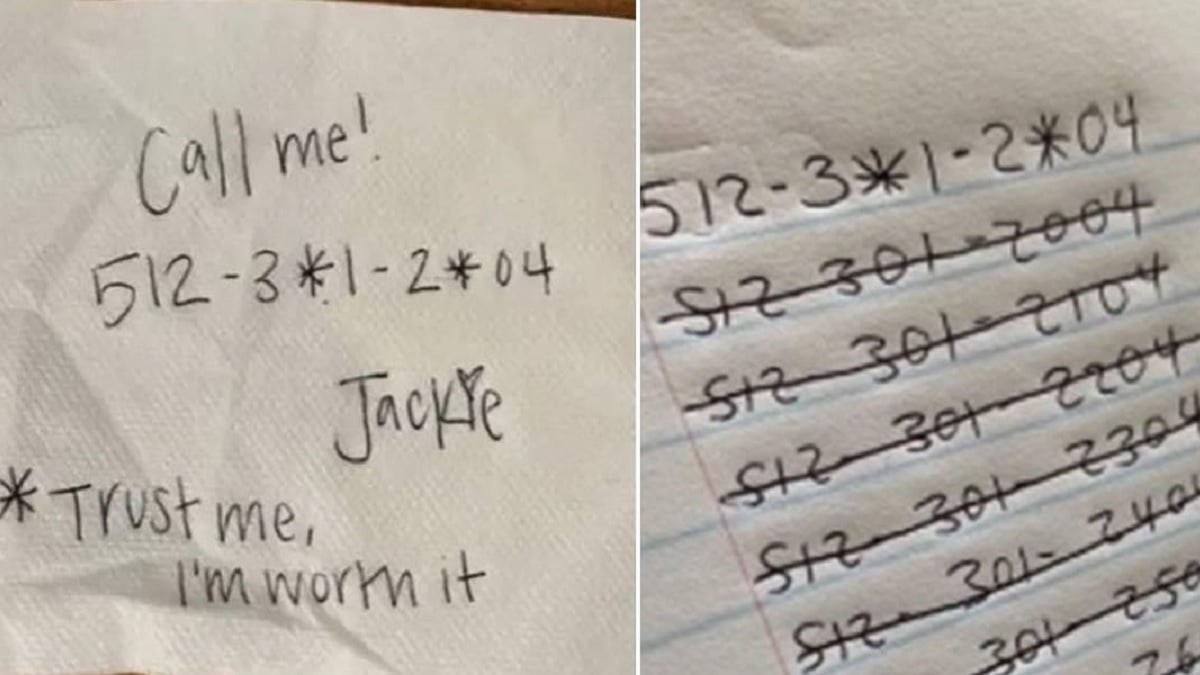 Call me!
512-3*1-2*04
Jackie
* Trust me,
I'm worth it
512-3*1-2*04
512-301-2004
512-301-2104
512-301-2204
512-301-2304
512-301-240
301-250
26